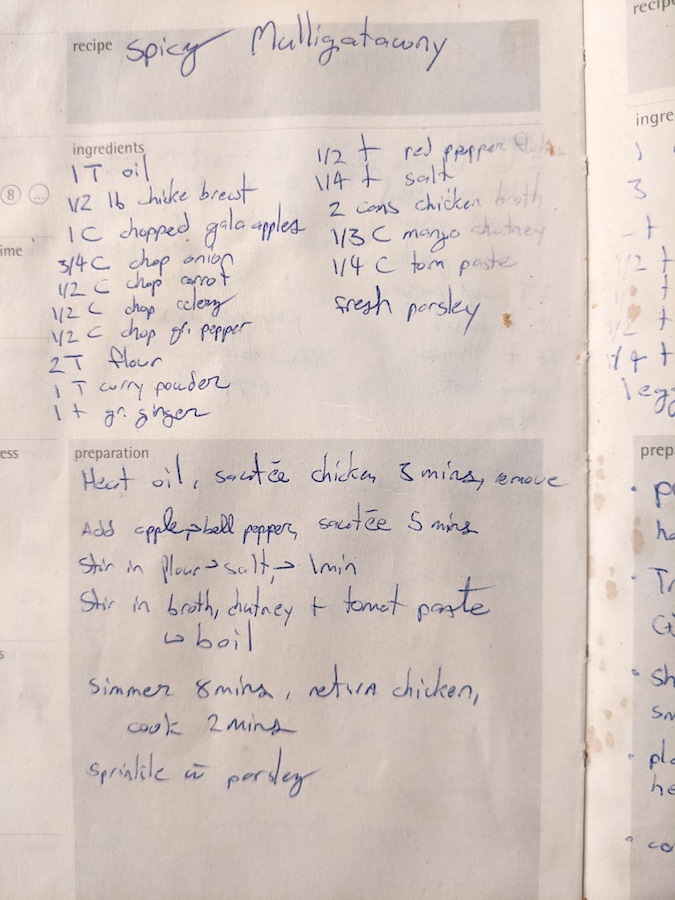 recipe Spicy Mulligatawny
ingredients
1 T oil
1/2 lb chicke breast
1 C chopped gala apples
3/4 C chop onion
1/2 C chop carrot
1/2 C chop celery
1/2 C chop gr. pepper
2 T flour
1 T curry powder
1 t gr. ginger
1/2 t red pepper flakes
1/4 t salt
2 cans chicken broth
1/3 C mango chutney
1/4 C tom paste
fresh parsley
preparation
Heat oil, sautée chicken 3 mins, remove
Add apple → bell pepper, sautée 5 mins
Stir in flour → salt, → 1min
Stir in broth, chutney + tomat paste
↳ boil
Simmer 8 mins, return chicken,
cook 2 mins
sprinkle w parsley
8 ...
ime
ess
s
recipe
ingre
1
3
t
1/2 t
t
1/2 t
1/4 t
1 egg
prep
• 
• Tr
• sh
sm
• pla
he
• co